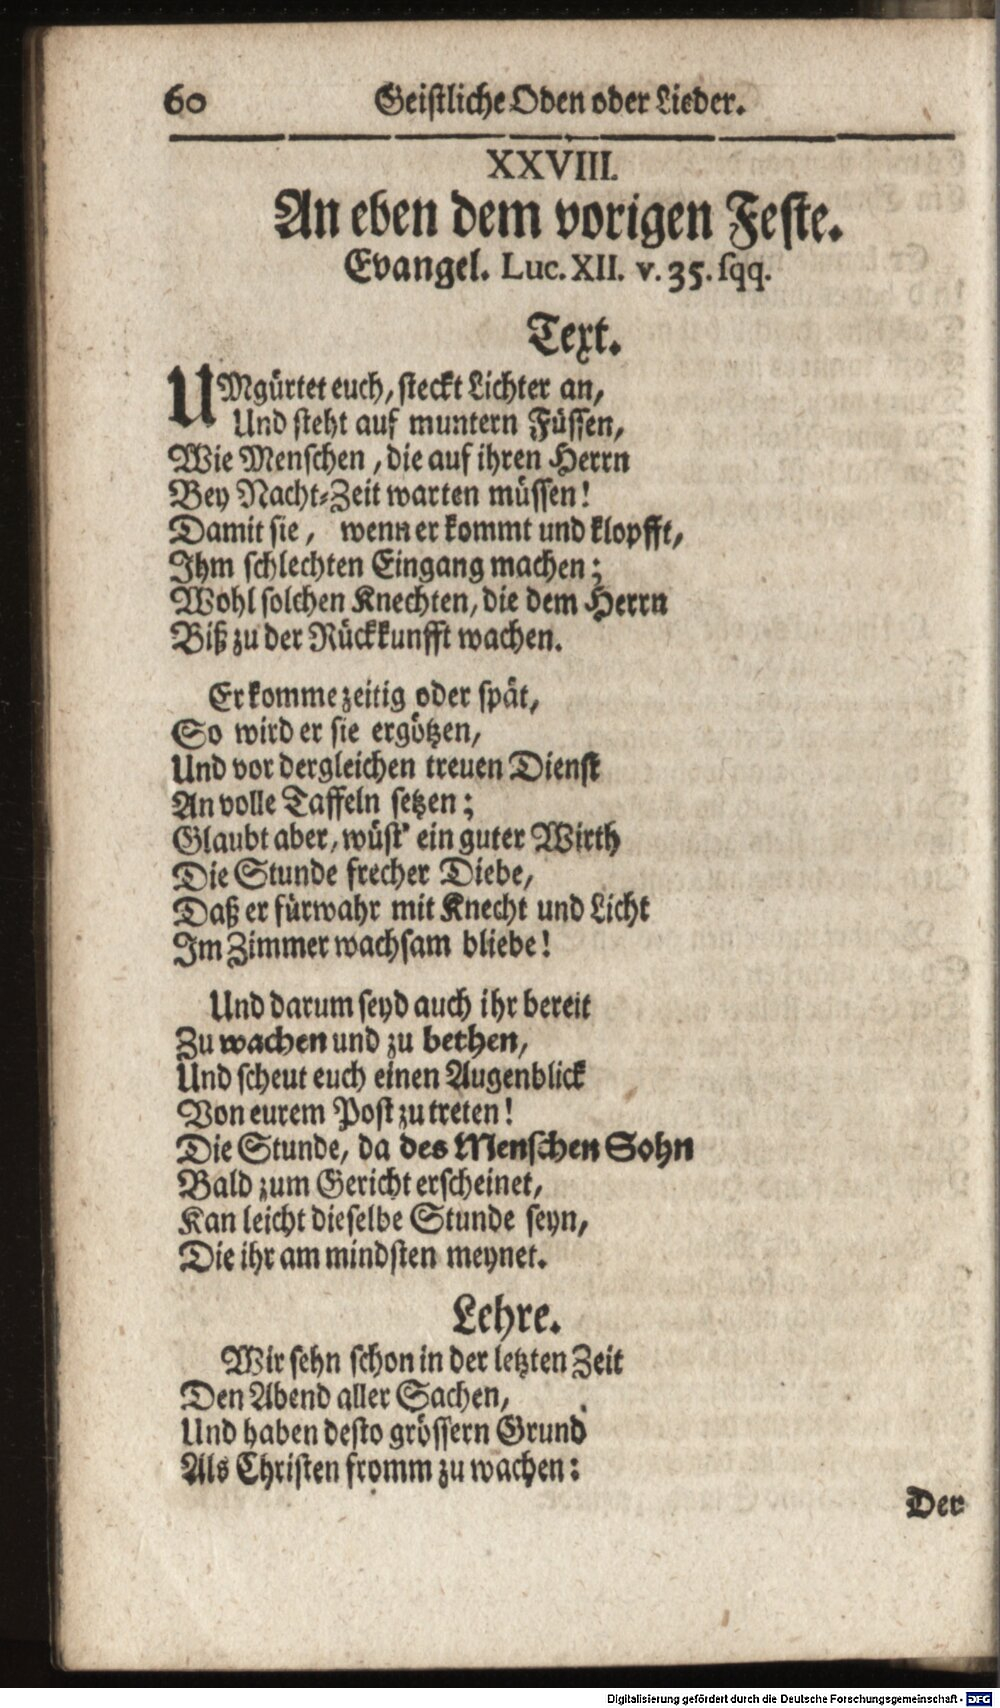 60 Geistliche Oden oder Lieder.
XXVIII.
An eben dem vorigen Feste.
Evangel. Luc. XII. v. 35. sqq.
Text.
UMgürtet euch, steckt Lichter an,
Und steht auf muntern Füssen,
Wie Menschen, die auf ihren Herrn
Bey Nacht-Zeit warten müssen!
Damit sie, wenn er kommt und klopfft,
Ihm schlechten Eingang machen;
Wohl solchen Knechten, die dem Herrn
Biß zu der Rückkunfft wachen.
Er komme zeitig oder spät,
So wird er sie ergötzen,
Und vor dergleichen treuen Dienst
An volle Taffeln setzen;
Glaubt aber, wüst' ein guter Wirth
Die Stunde frecher Diebe,
Daß er fürwahr mit Knecht und Licht
Im Zimmer wachsam bliebe!
Und darum seyd auch ihr bereit
Zu wachen und zu bethen,
Und scheut euch einen Augenblick
Von eurem Post zu treten!
Die Stunde, da des Menschen Sohn
Bald zum Gericht erscheinet,
Kan leicht dieselbe Stunde seyn,
Die ihr am mindsten meynet.
Lehre.
Wir sehn schon in der letzten Zeit
Den Abend aller Sachen,
Und haben desto grössern Grund
Als Christen fromm zu wachen:
Der
Digitalisierung gefördert durch die Deutsche Forschungsgemeinschaft - DFG